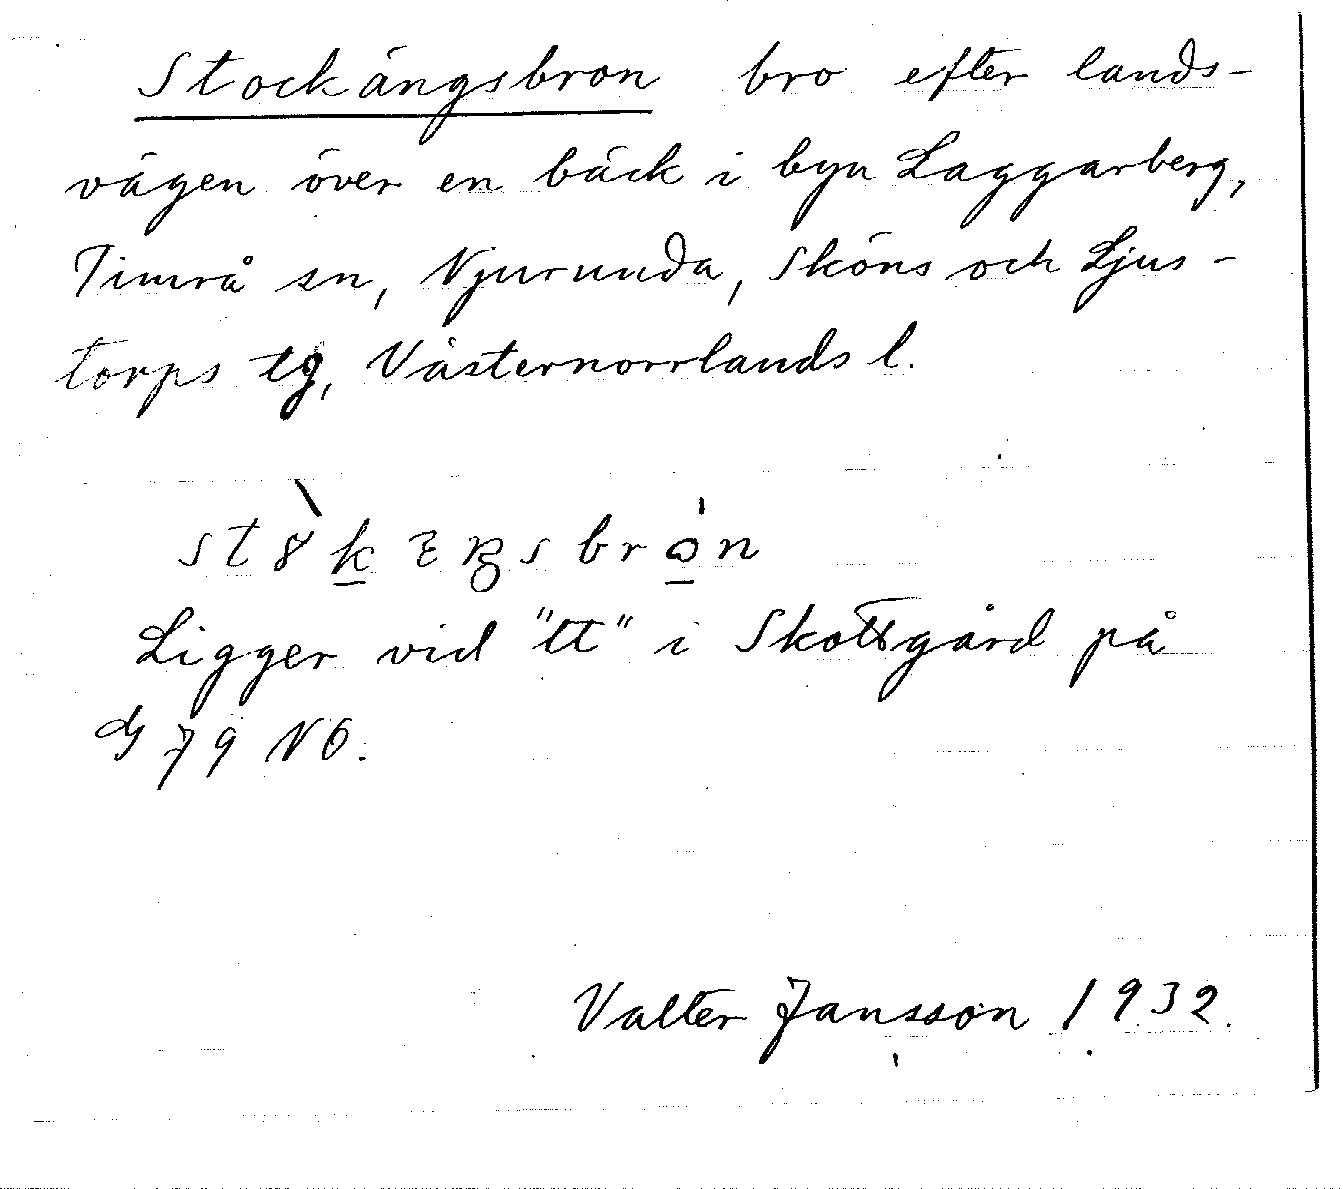 Stockängsbron bro efter lands-
vägen över en bäck i byn Laggarberg,
Timrå sn, Njurunda, Sköns och Ljus-
torps tg, Västernorrlands l.
Ligger vid "tt" i Skottgård på
G 79 NO.
Valter Jansson 1932.